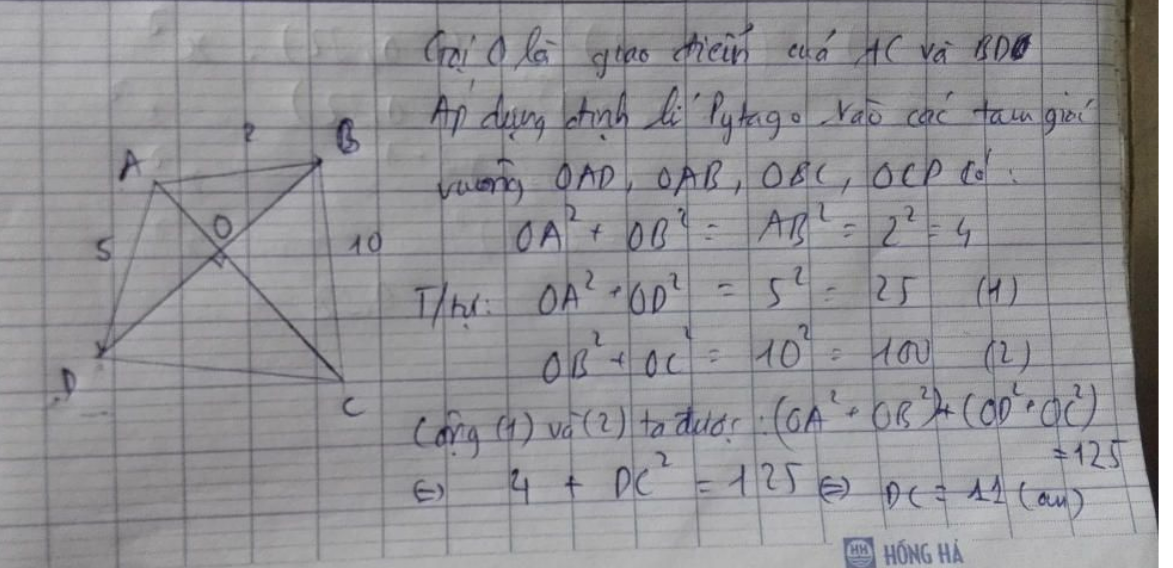 Gọi O là giao điểm của AC và BD
Áp dụng định lí Pytago vào các tam giác
vuông OAD, OAB, OBC, OCD có:
OA² + OB² = AB² = 2² = 4
T/tự: OA² + OD² = 5² = 25 (1)
OB² + OC² = 10² = 100 (2)
Cộng (1) và (2) ta được: (OA² + OB²) + (OD² + OC²)
= 125
⇔ 4 + DC² = 125 ⇔ DC = 11 (cm)
A
2
B
5
O
10
D
C
HH HỒNG HÀ